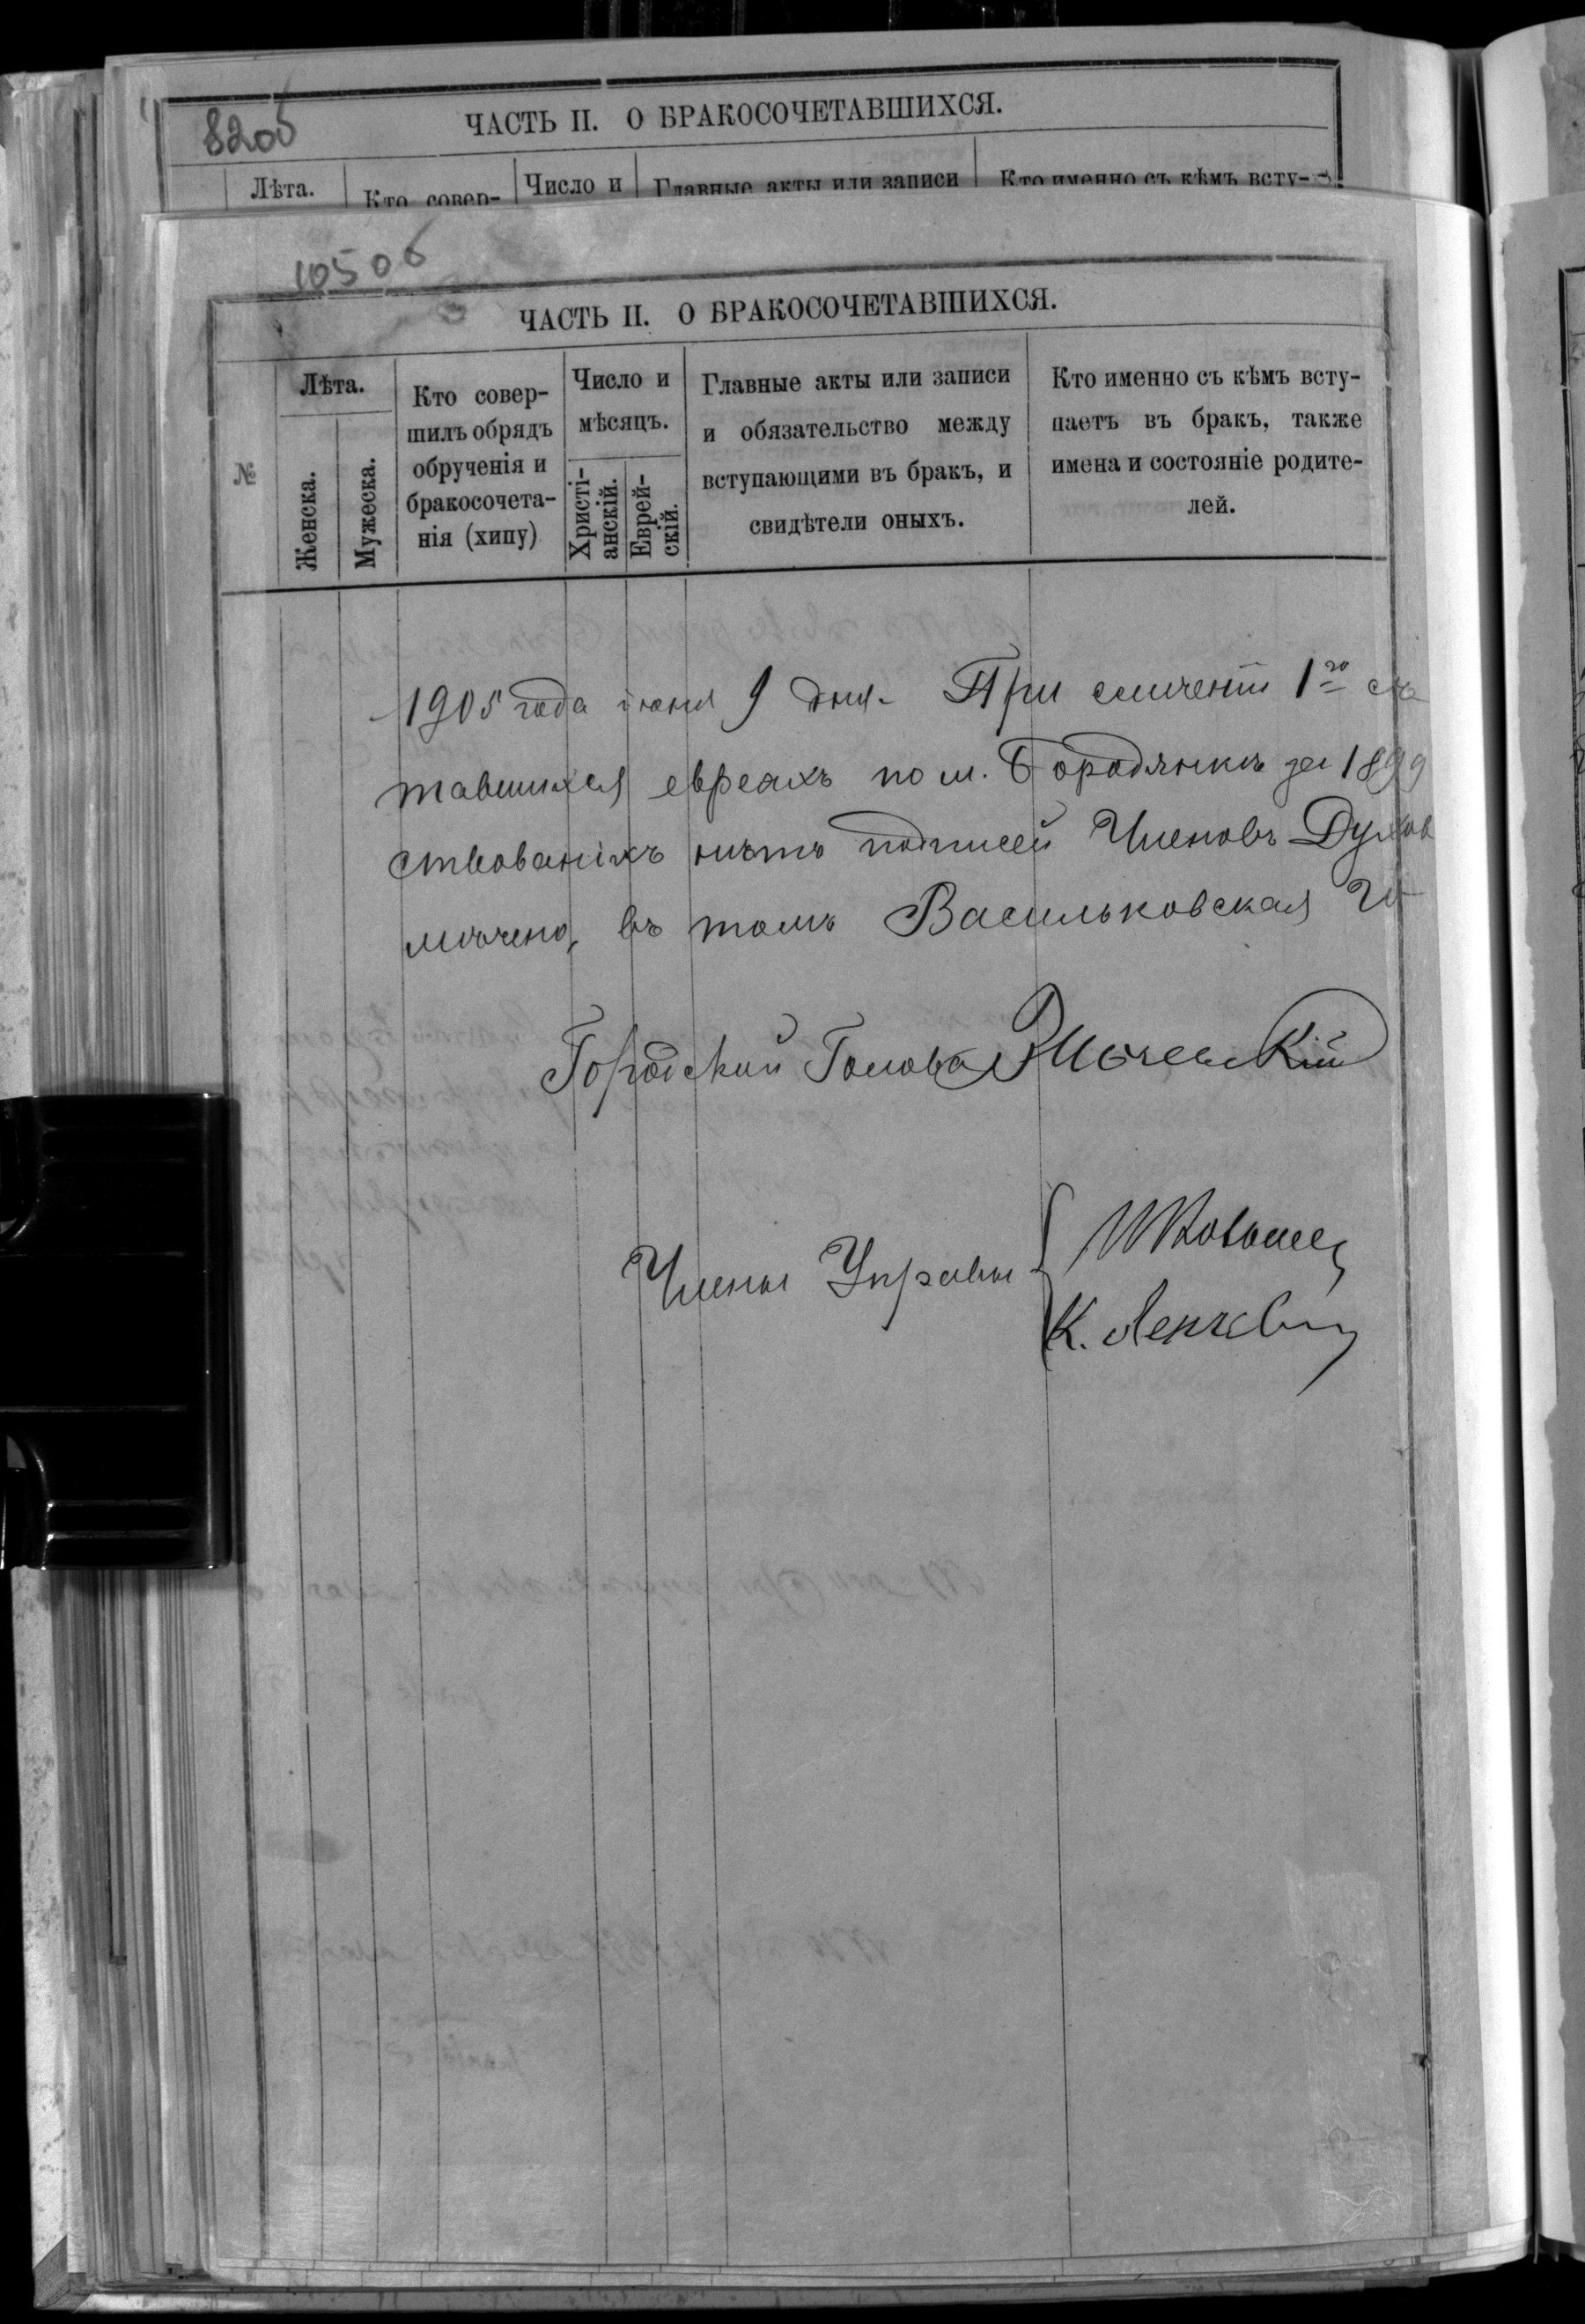 820б
ЧАСТЬ II. О БРАКОСОЧЕТАВШИХСЯ.
Лѣта.
Кто совер-
Число и
Главные акты или записи
Кто именно съ кѣмъ всту-
1050б
ЧАСТЬ II. О БРАКОСОЧЕТАВШИХСЯ.
№
Лѣта.
Женска.
Мужеска.
Кто совер-
шилъ обрядъ
обрученія и
бракосочета-
нія (хипу)
Число и
мѣсяцъ.
Христі-
анскій.
Еврей-
скій.
Главные акты или записи
и обязательство между
вступающими въ бракъ, и
свидѣтели оныхъ.
Кто именно съ кѣмъ всту-
паетъ въ бракъ, также
имена и состояніе родите-
лей.
1905 года іюня 9 дня. При сличеніи 1го
тавшихся евреахъ по м. Бородянкѣ за 1899
ствованіяхъ нѣтъ подписей Членовъ Духов
мѣчено, въ томъ Васильковская
Городской Голова
Члены Управы
К.